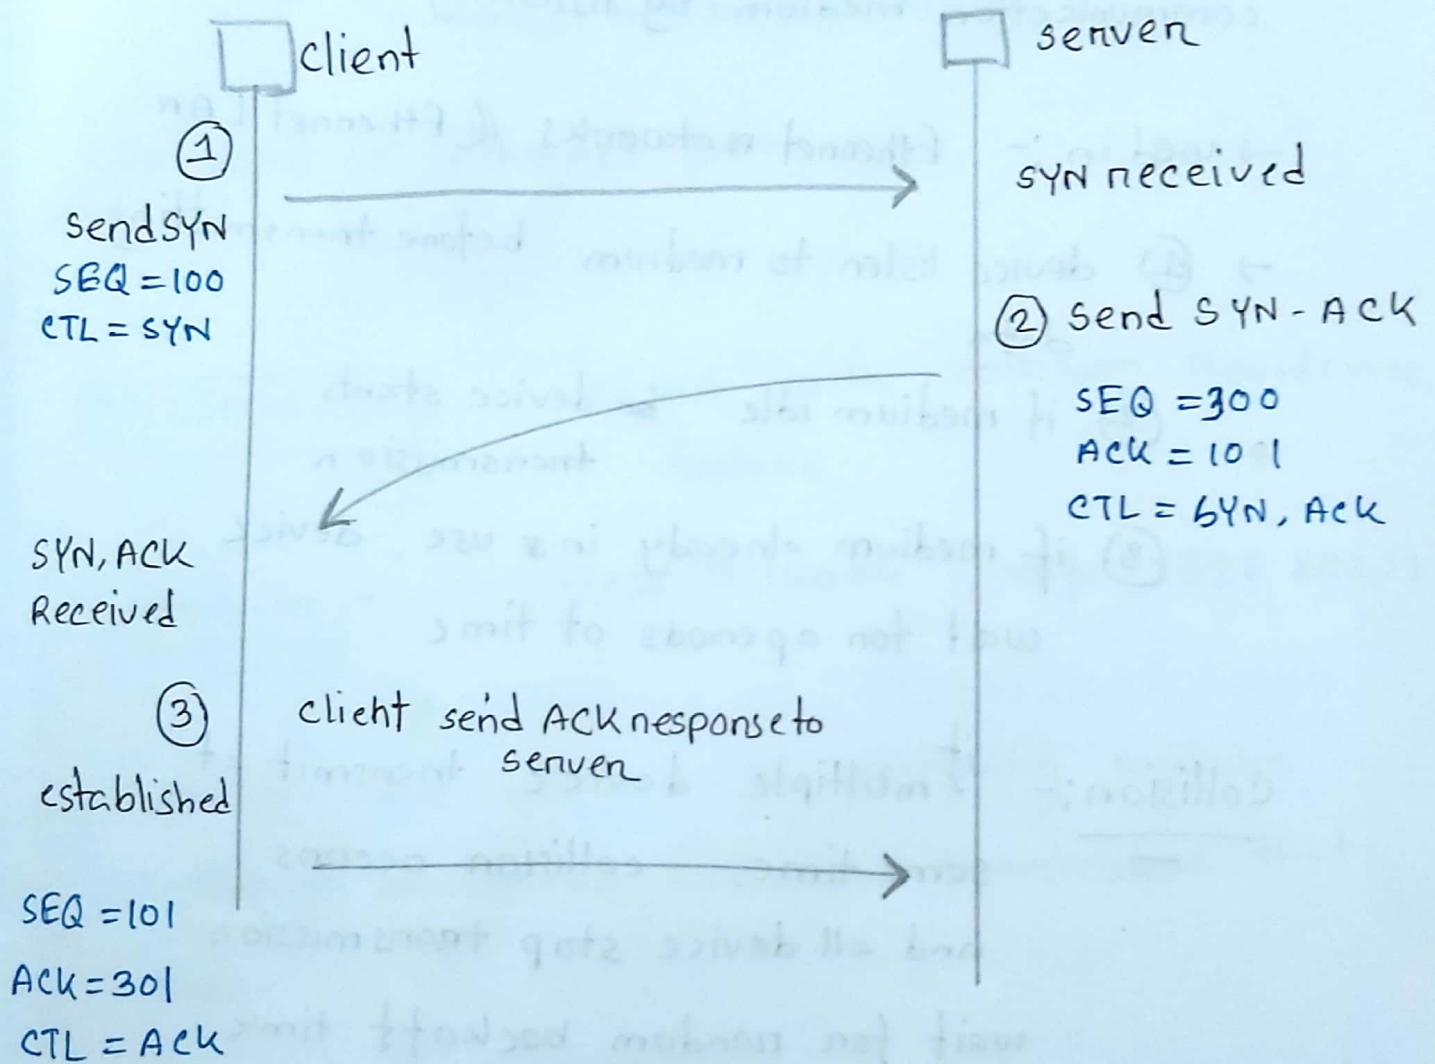 client
server
1
send SYN
SEQ = 100
CTL = SYN
SYN received
2 Send SYN - ACK
SEQ = 300
ACK = 101
CTL = SYN, ACK
SYN, ACK
Received
3
client send ACK response to
server
established
SEQ = 101
ACK = 301
CTL = ACK